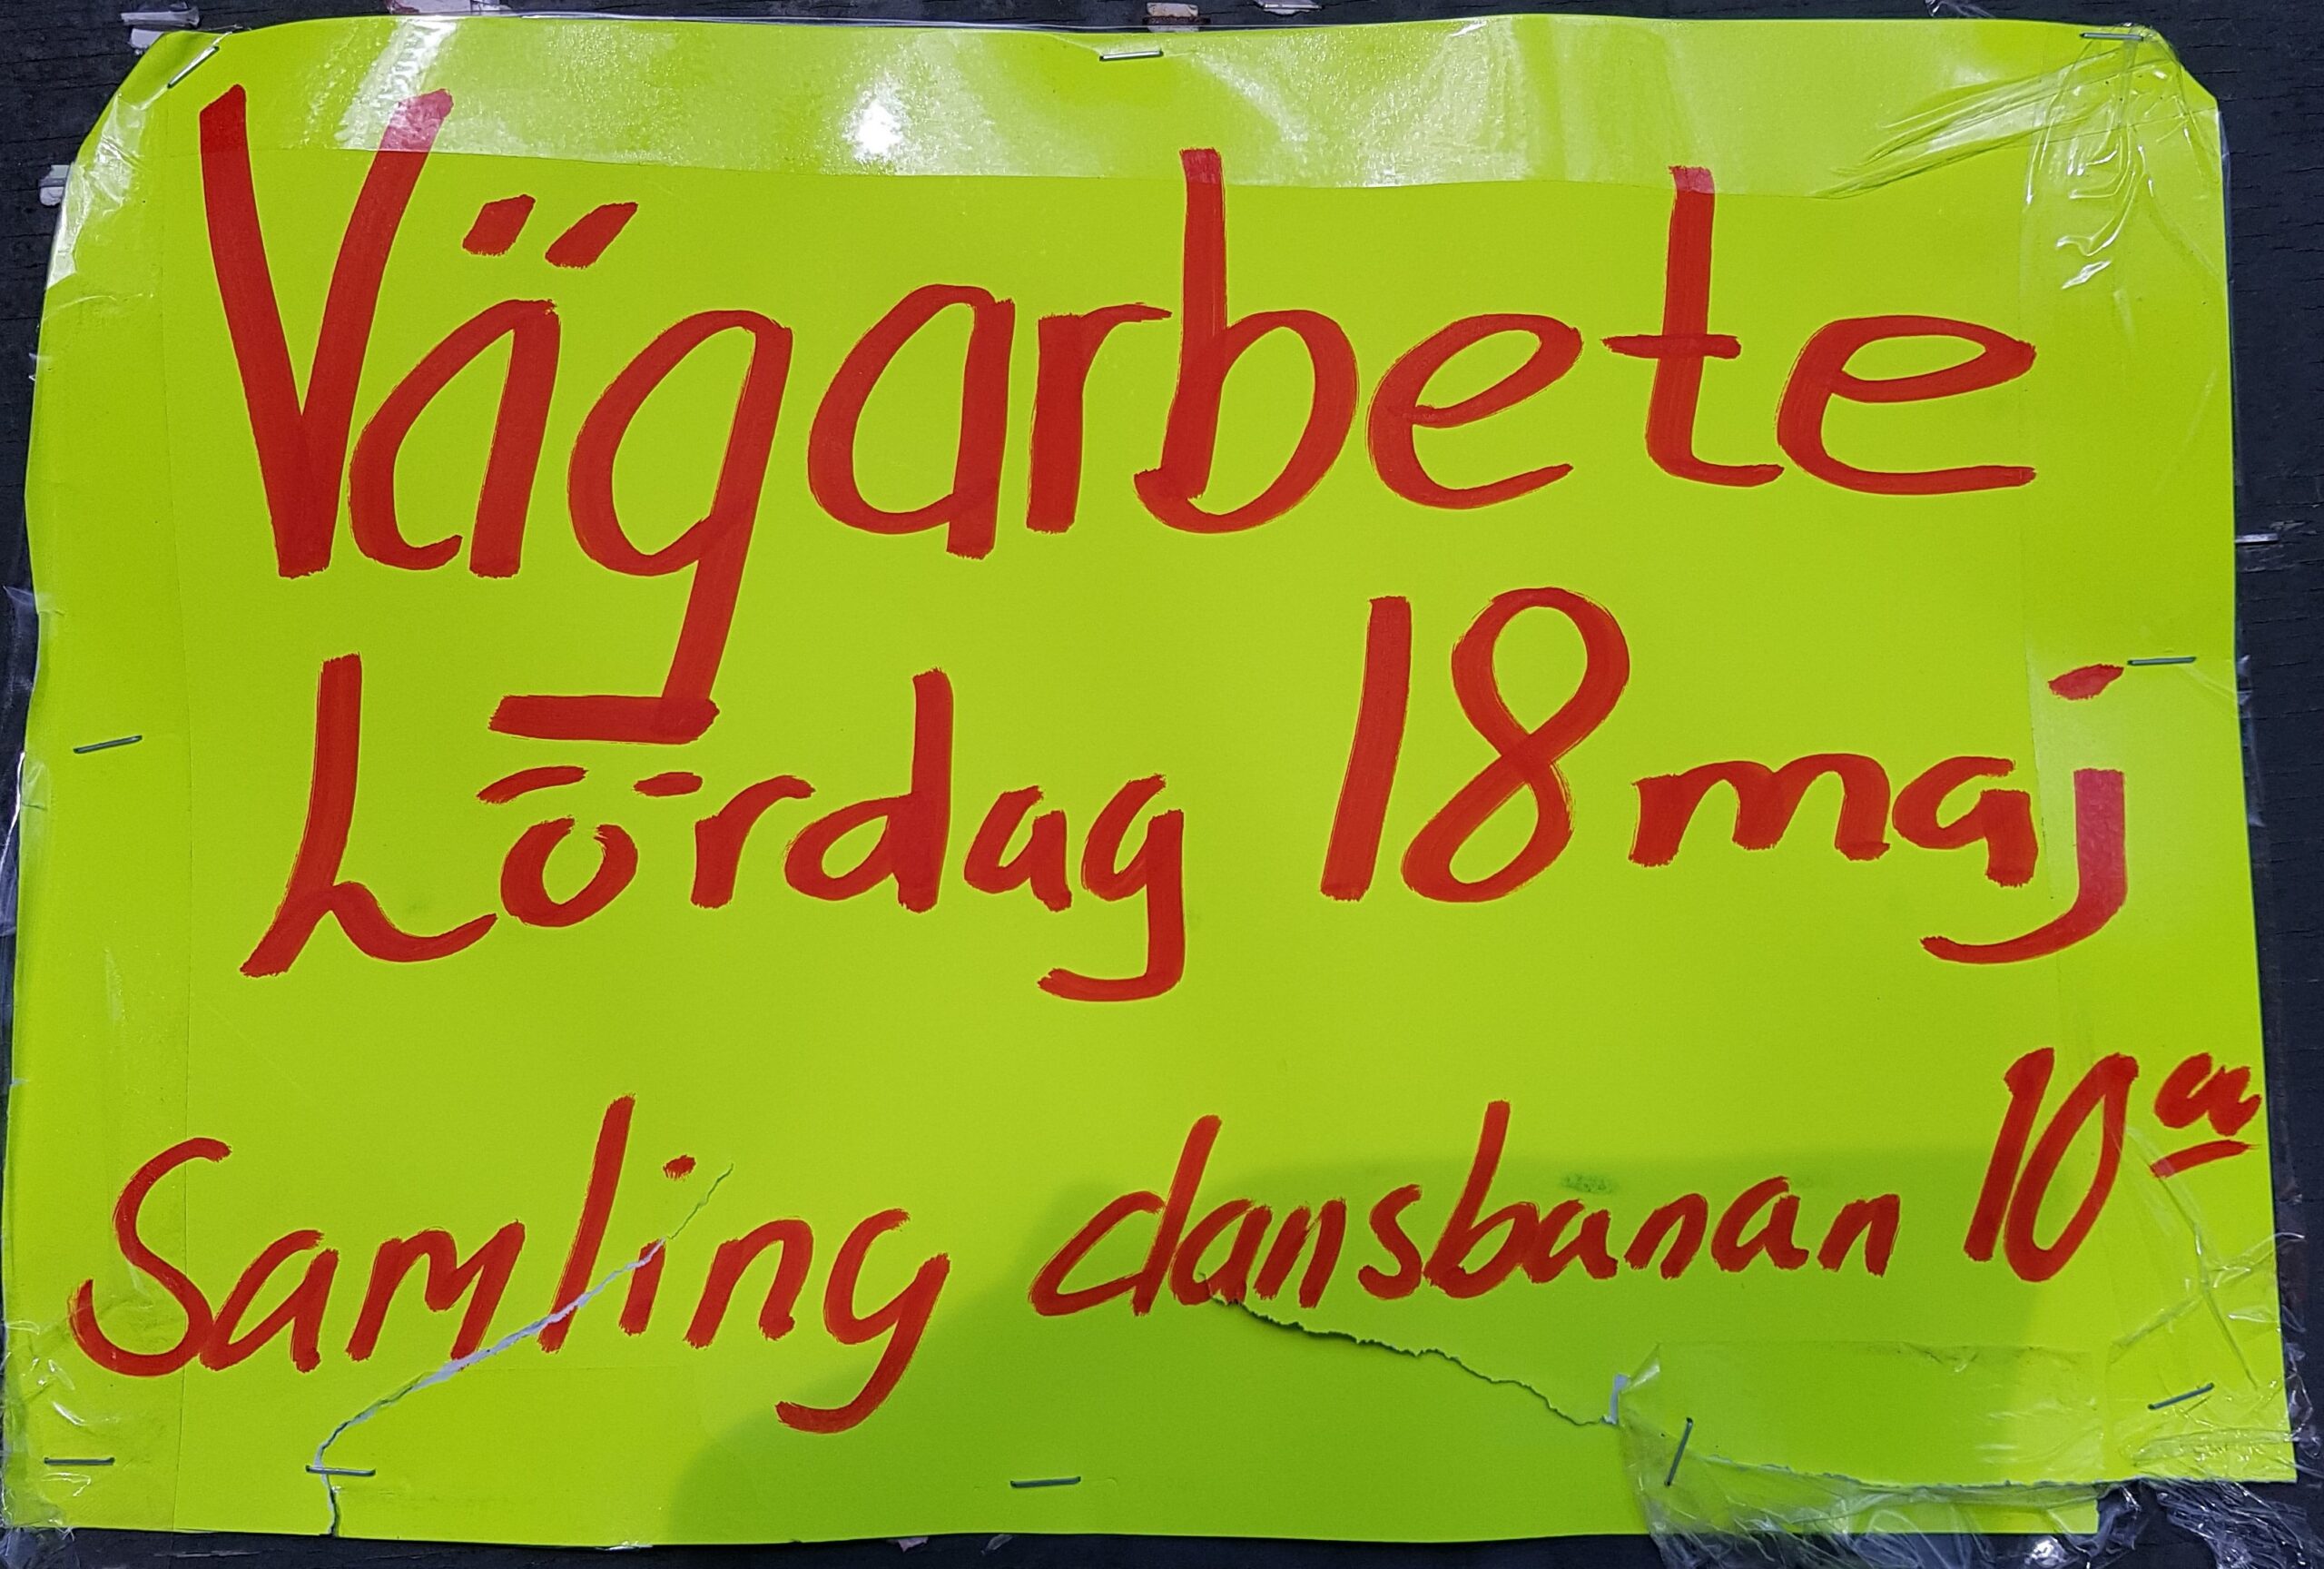 Vägarbete
Lördag 18 maj
Samling dansbanan 10⁰⁰